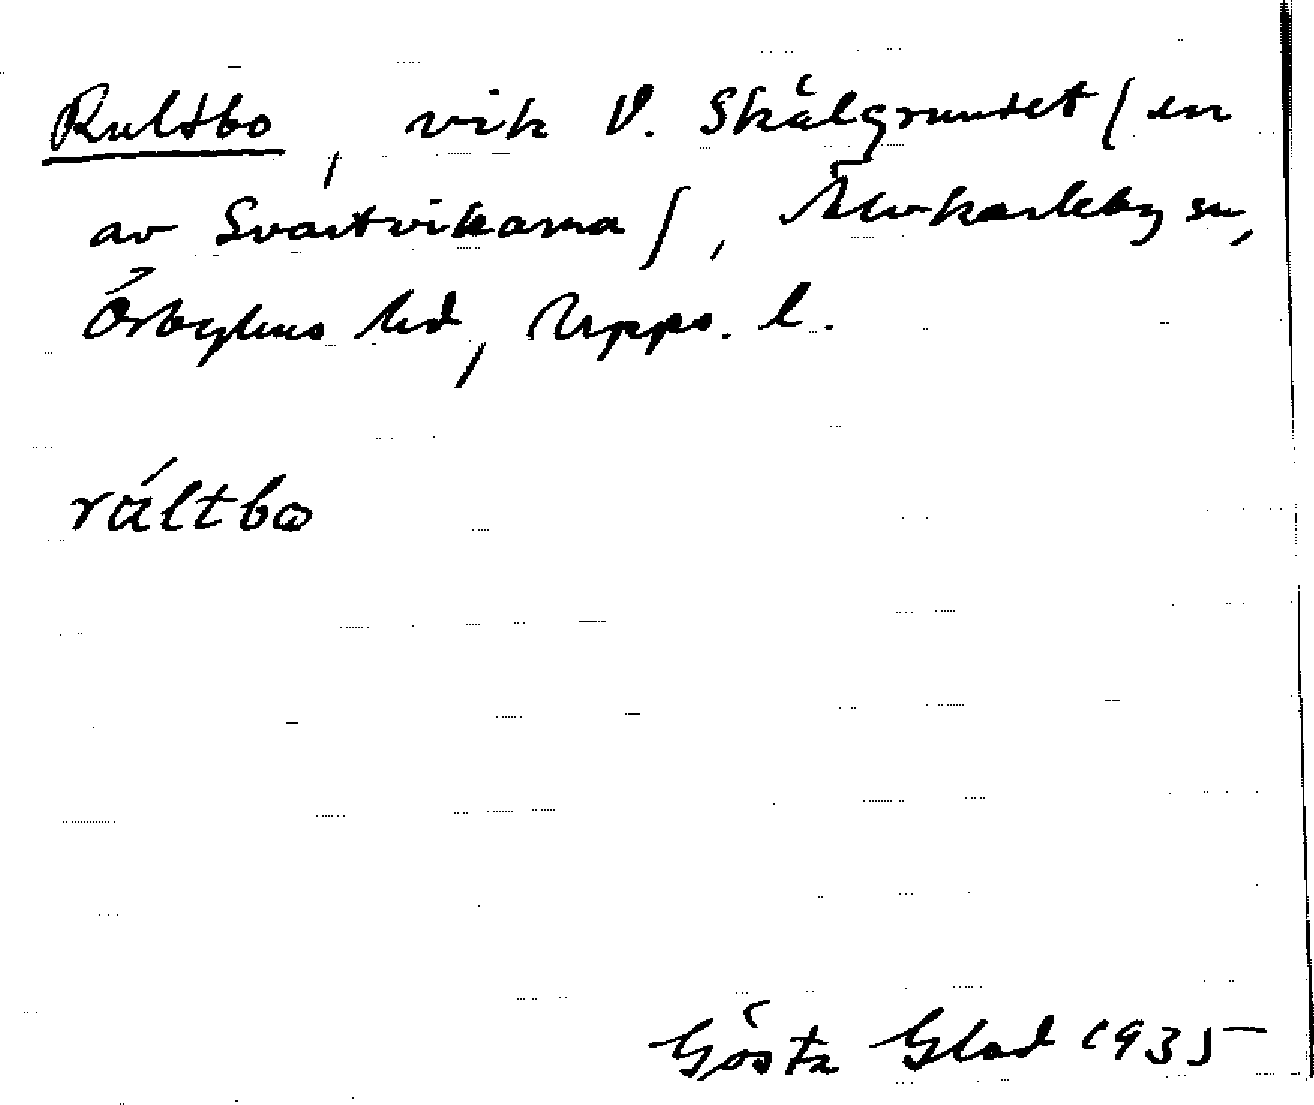 Rultbo, vik V. Skålgrundet (en
av Svartvikarna), Älvkarleby sn,
Örbyhus hd, Upps. l.
rúltbo
Gösta Glad 1935